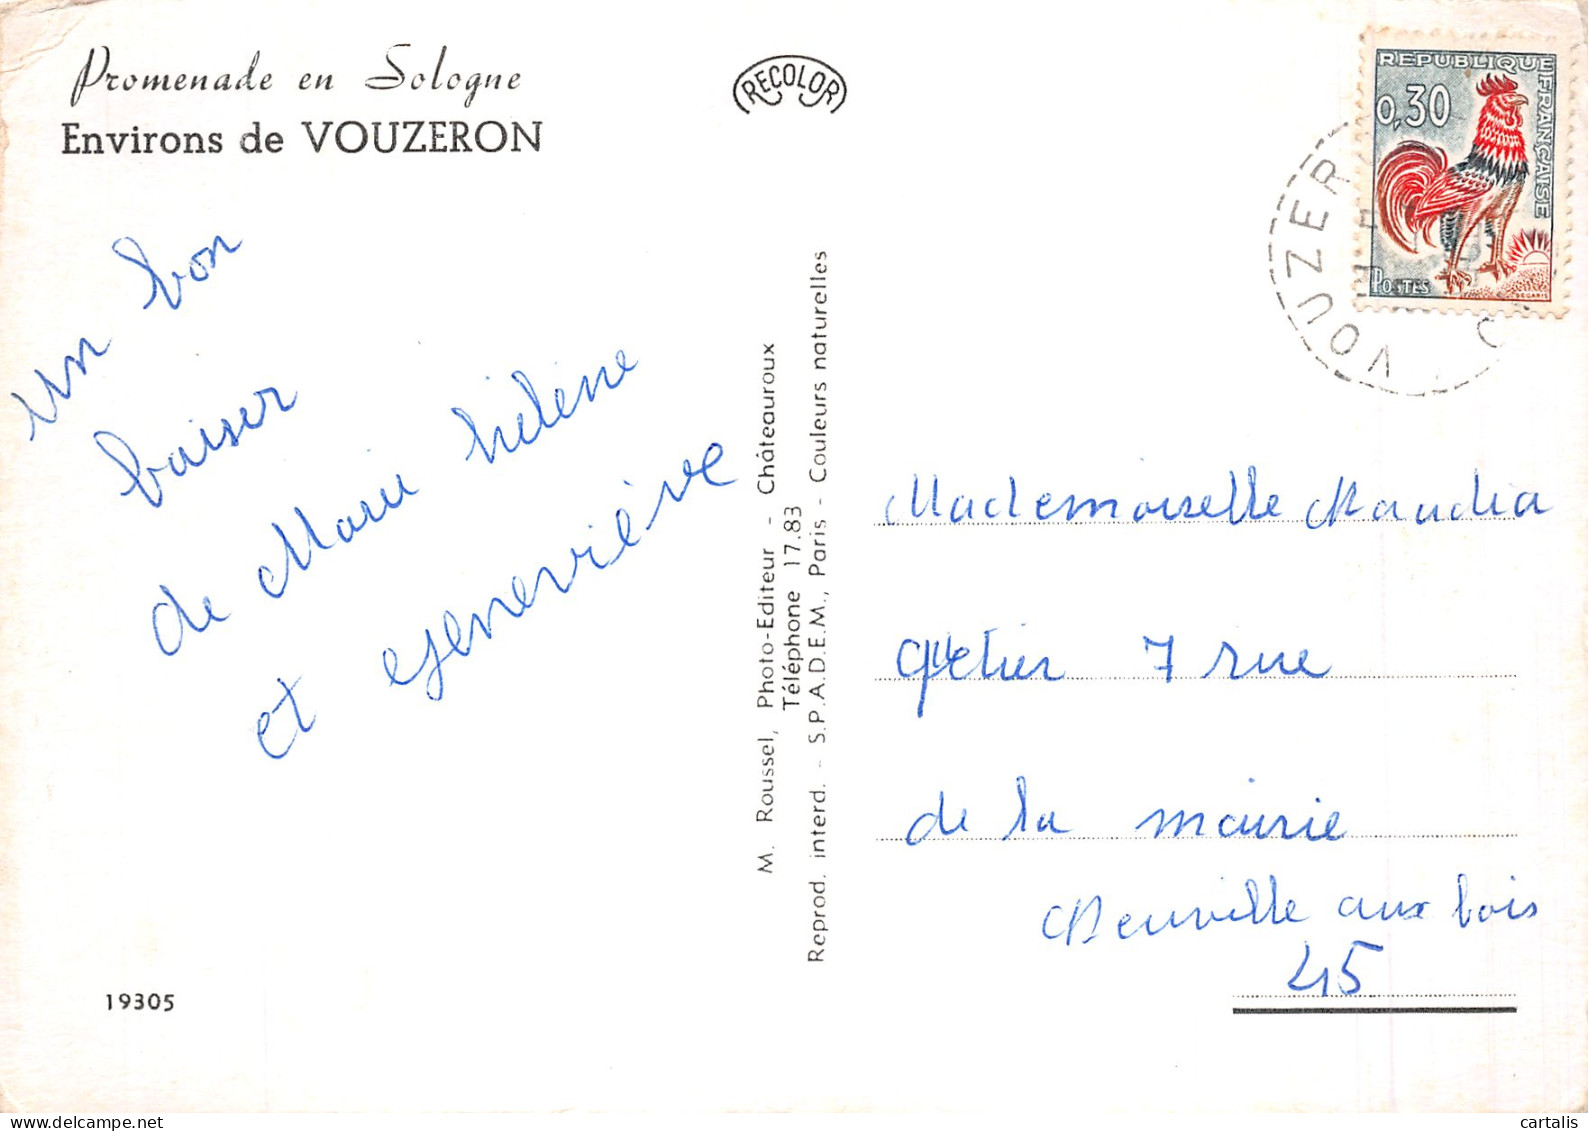 Promenade en Sologne
Environs de VOUZERON
RECOLOR
REPUBLIQUE
FRANÇAISE
0,30
POSTES
DECARIS
VOUZER
un bon
baiser
de Marie hélène
et geneviève
M. Roussel, Photo-Editeur - Châteauroux
Téléphone 17.83
Reprod. interd. - S.P.A.D.E.M., Paris - Couleurs naturelles
Mademoiselle
rue
7
de la mairie
Neuville aux bois
45
19305
cartalis